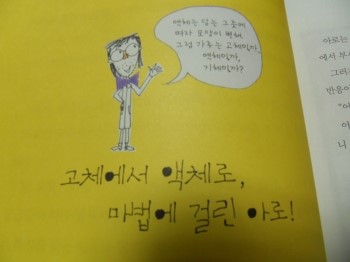 액체는 담는 그릇에
따라 모양이 변해.
그럼 가루는 고체일까,
액체일까,
기체일까?
고체에서 액체로,
마법에 걸린 아로!
아로는
에서 부
그러
반응이
"어
아
니